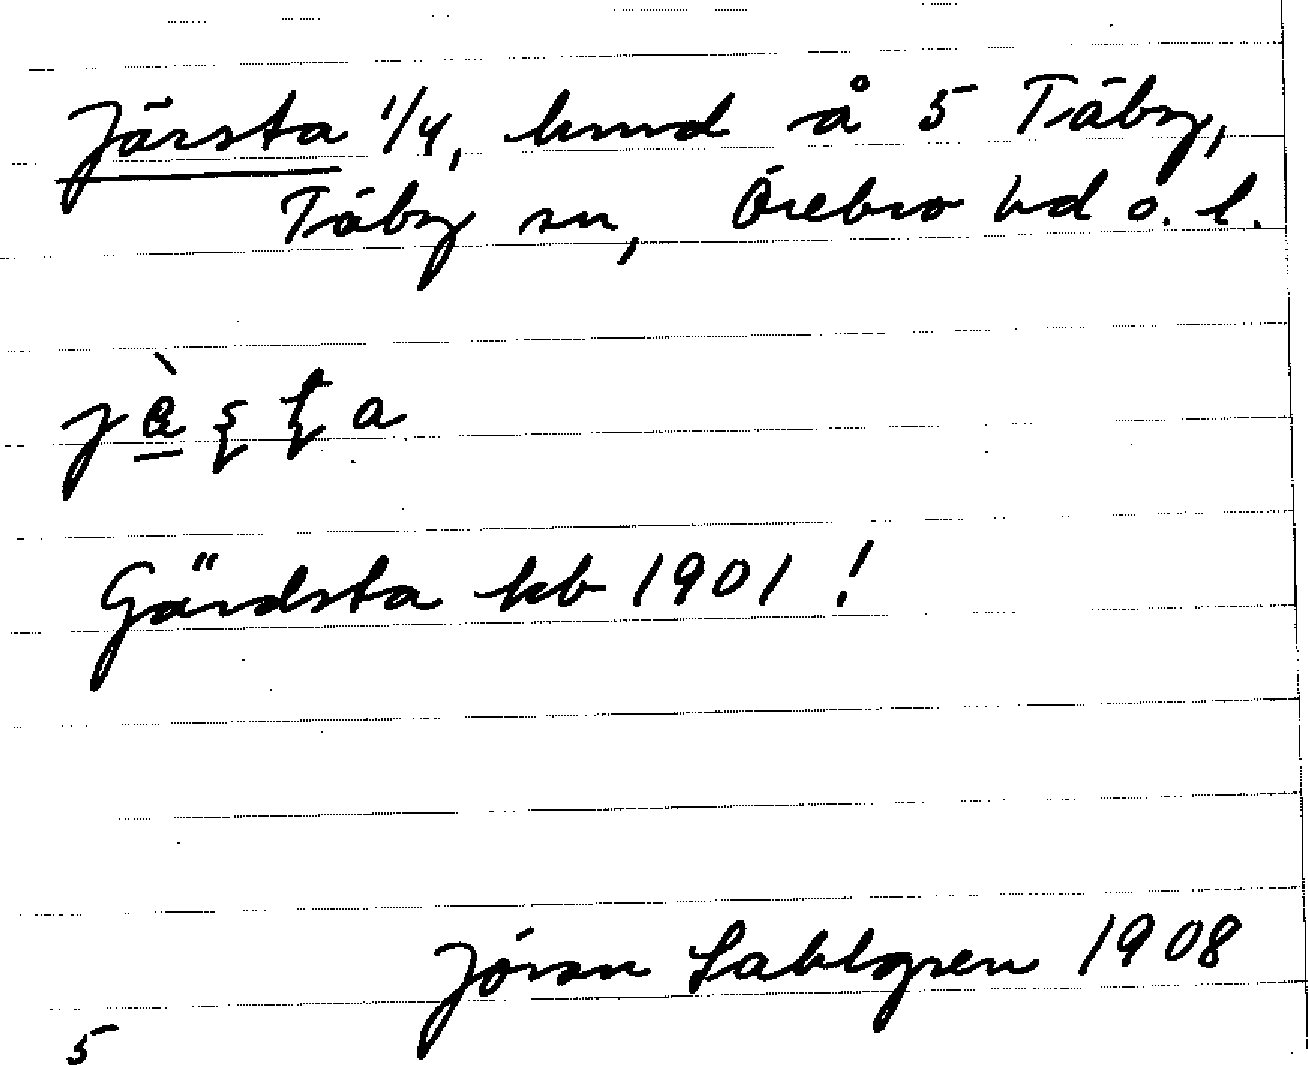 Järsta 1/4, hmd å 5 Täby,
Täby sn, Örebro hd o. l.
jàʂʈa
Gärdsta kb 1901 !
Jöran Sahlgren 1908
5